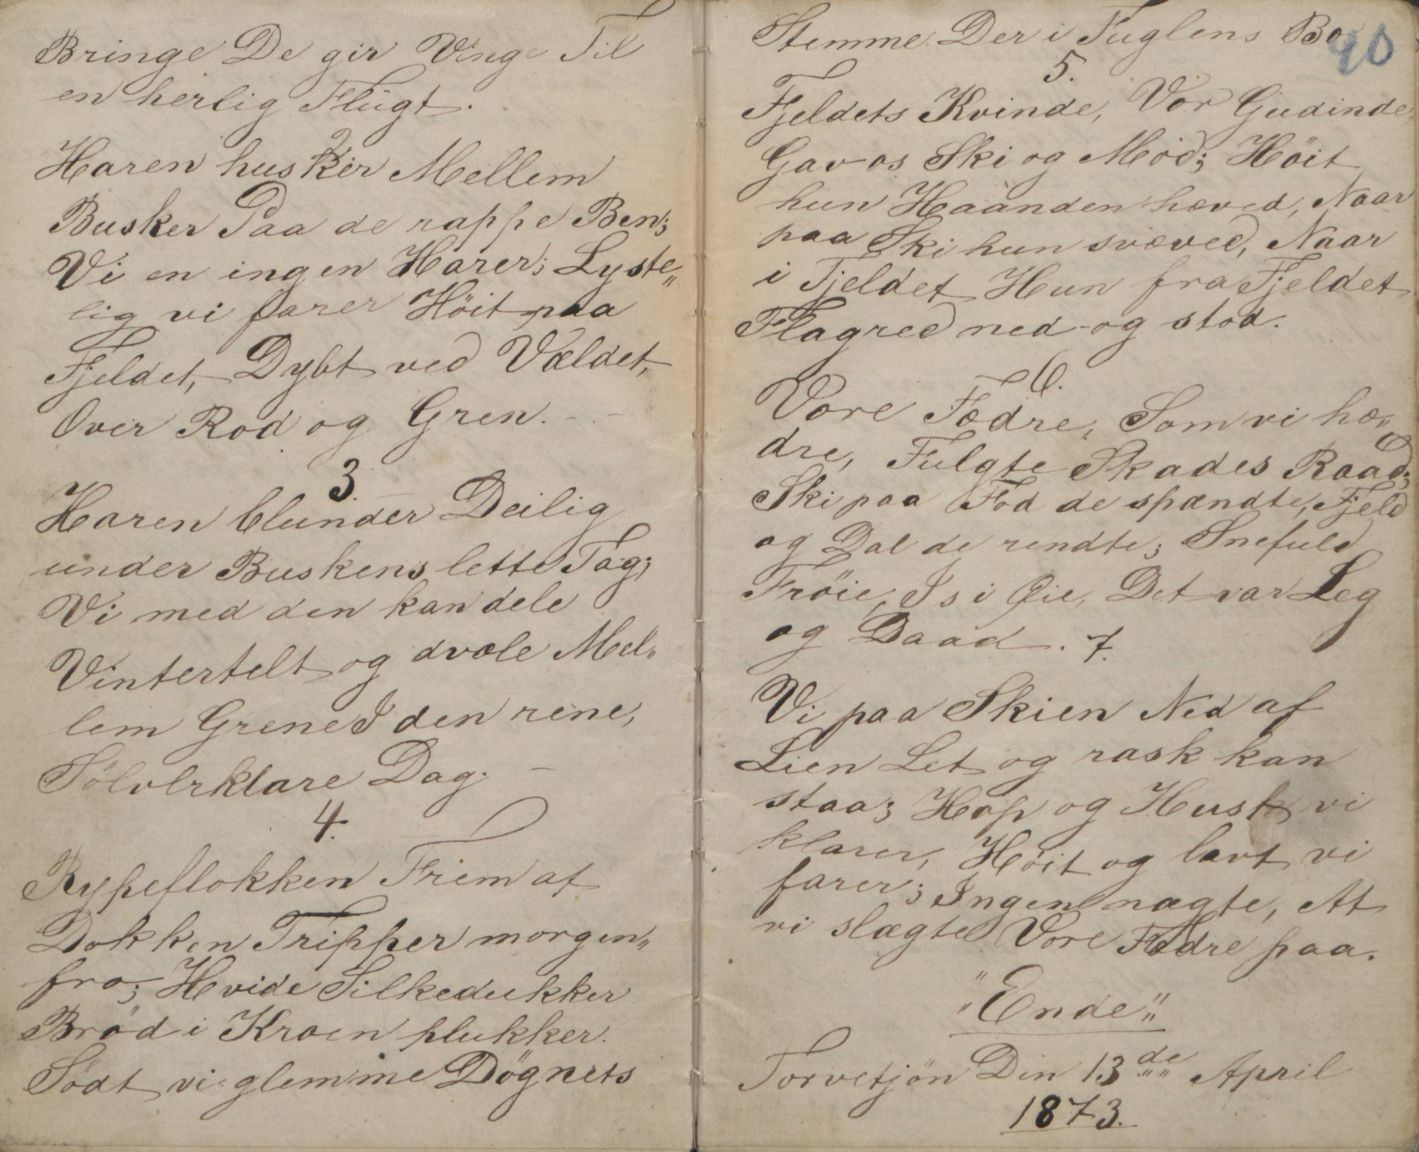 Bringe De gir Vinge Til
en herlig Flügt.
2.
Haren husker Mellem
Busker Paa de rappe Ben;
Vi en ingen Harer; Lyste„
lig vi farer Höit paa
Fjeldet, Dybt ved Vældet,
Over Rod og Gren.
3.
Haren blunder Deilig
under Buskens lette Tag;
Vi med den kan dele
Vintertelt og dvæle Mel„
lem Grene I den rene,
Sölvlrklare Dag.
4.
Rypeflokken Frem af
Dokken Tripper morgen„
fro; Hvide Silkedukker
Bröd i Kroen plukker.
Södt vi glemme Dögnets
Stemme Der i Fuglens Bo
40
5.
Fjeldets Kvinde, Vor Gudinde,
Gav os Ski og Mod; Höit
hun Haanden hæved, Naar
paa Ski hun svæved, Naar
i Tjeldet Hun fra Fjeldet
Flagred ned og stod.
6.
Vore Fædre, Som vi hæ„
dre, Fulgte Skades Raad;
Ski paa Fod de spændte, Fjeld
og Dal de rendte; Snefuld
Tröie, Is i Øie, Det var Leg
og Daad. 7.
Vi paa Skien Ned af
Lien Let og rask kan
staa; Hop og Husk vi
klarer, Höit og lavt vi
farer; Ingen nægte, At
vi slægte Vore Fædre paa.
"Ende"
Torvetjön Din 13de April
1873.